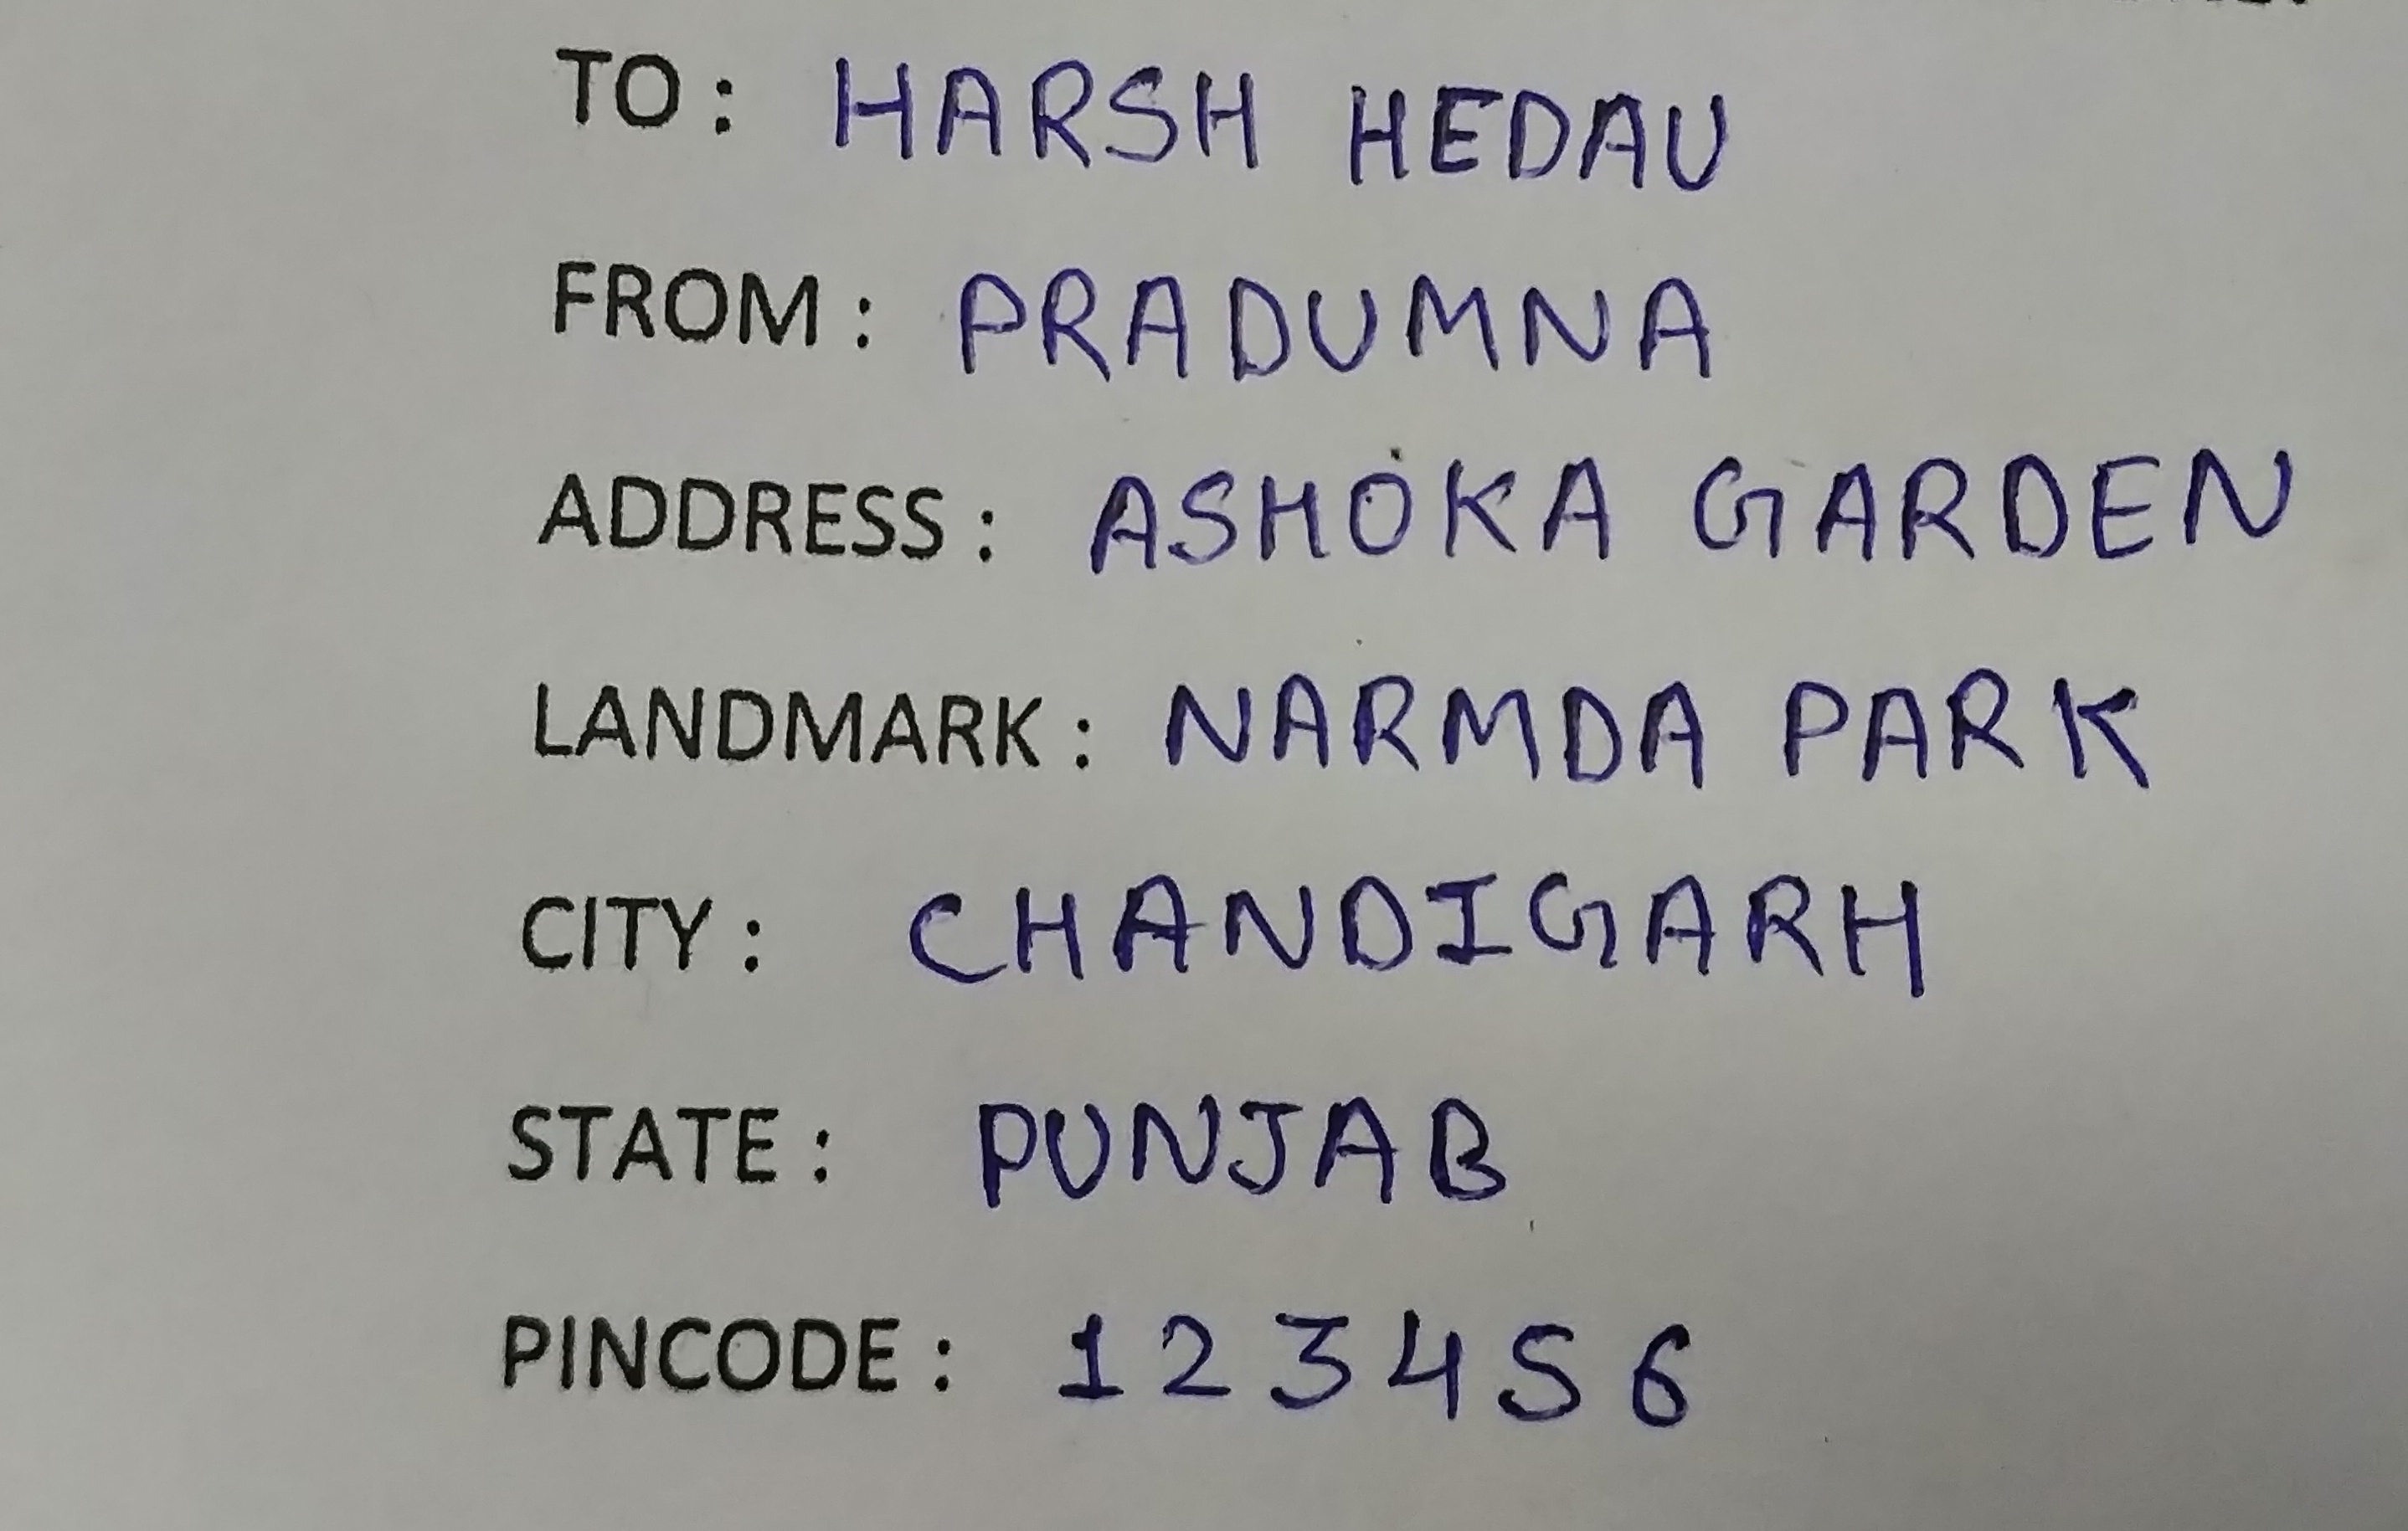 TO : HARSH HEDAU
FROM : PRADUMNA
ADDRESS : ASHOKA GARDEN
LANDMARK : NARMDA PARK
CITY : CHANDIGARH
STATE : PUNJAB
PINCODE : 123456